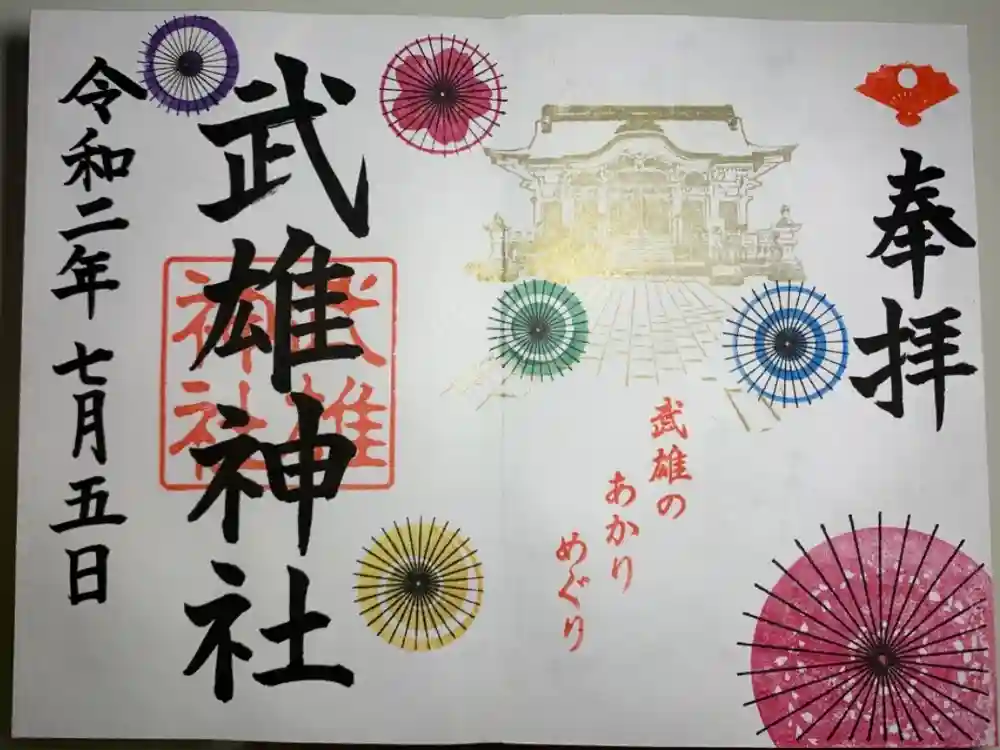 奉拝
武雄の
あかり
めぐり
武雄神社
武雄
神社
令和二年 七月五日